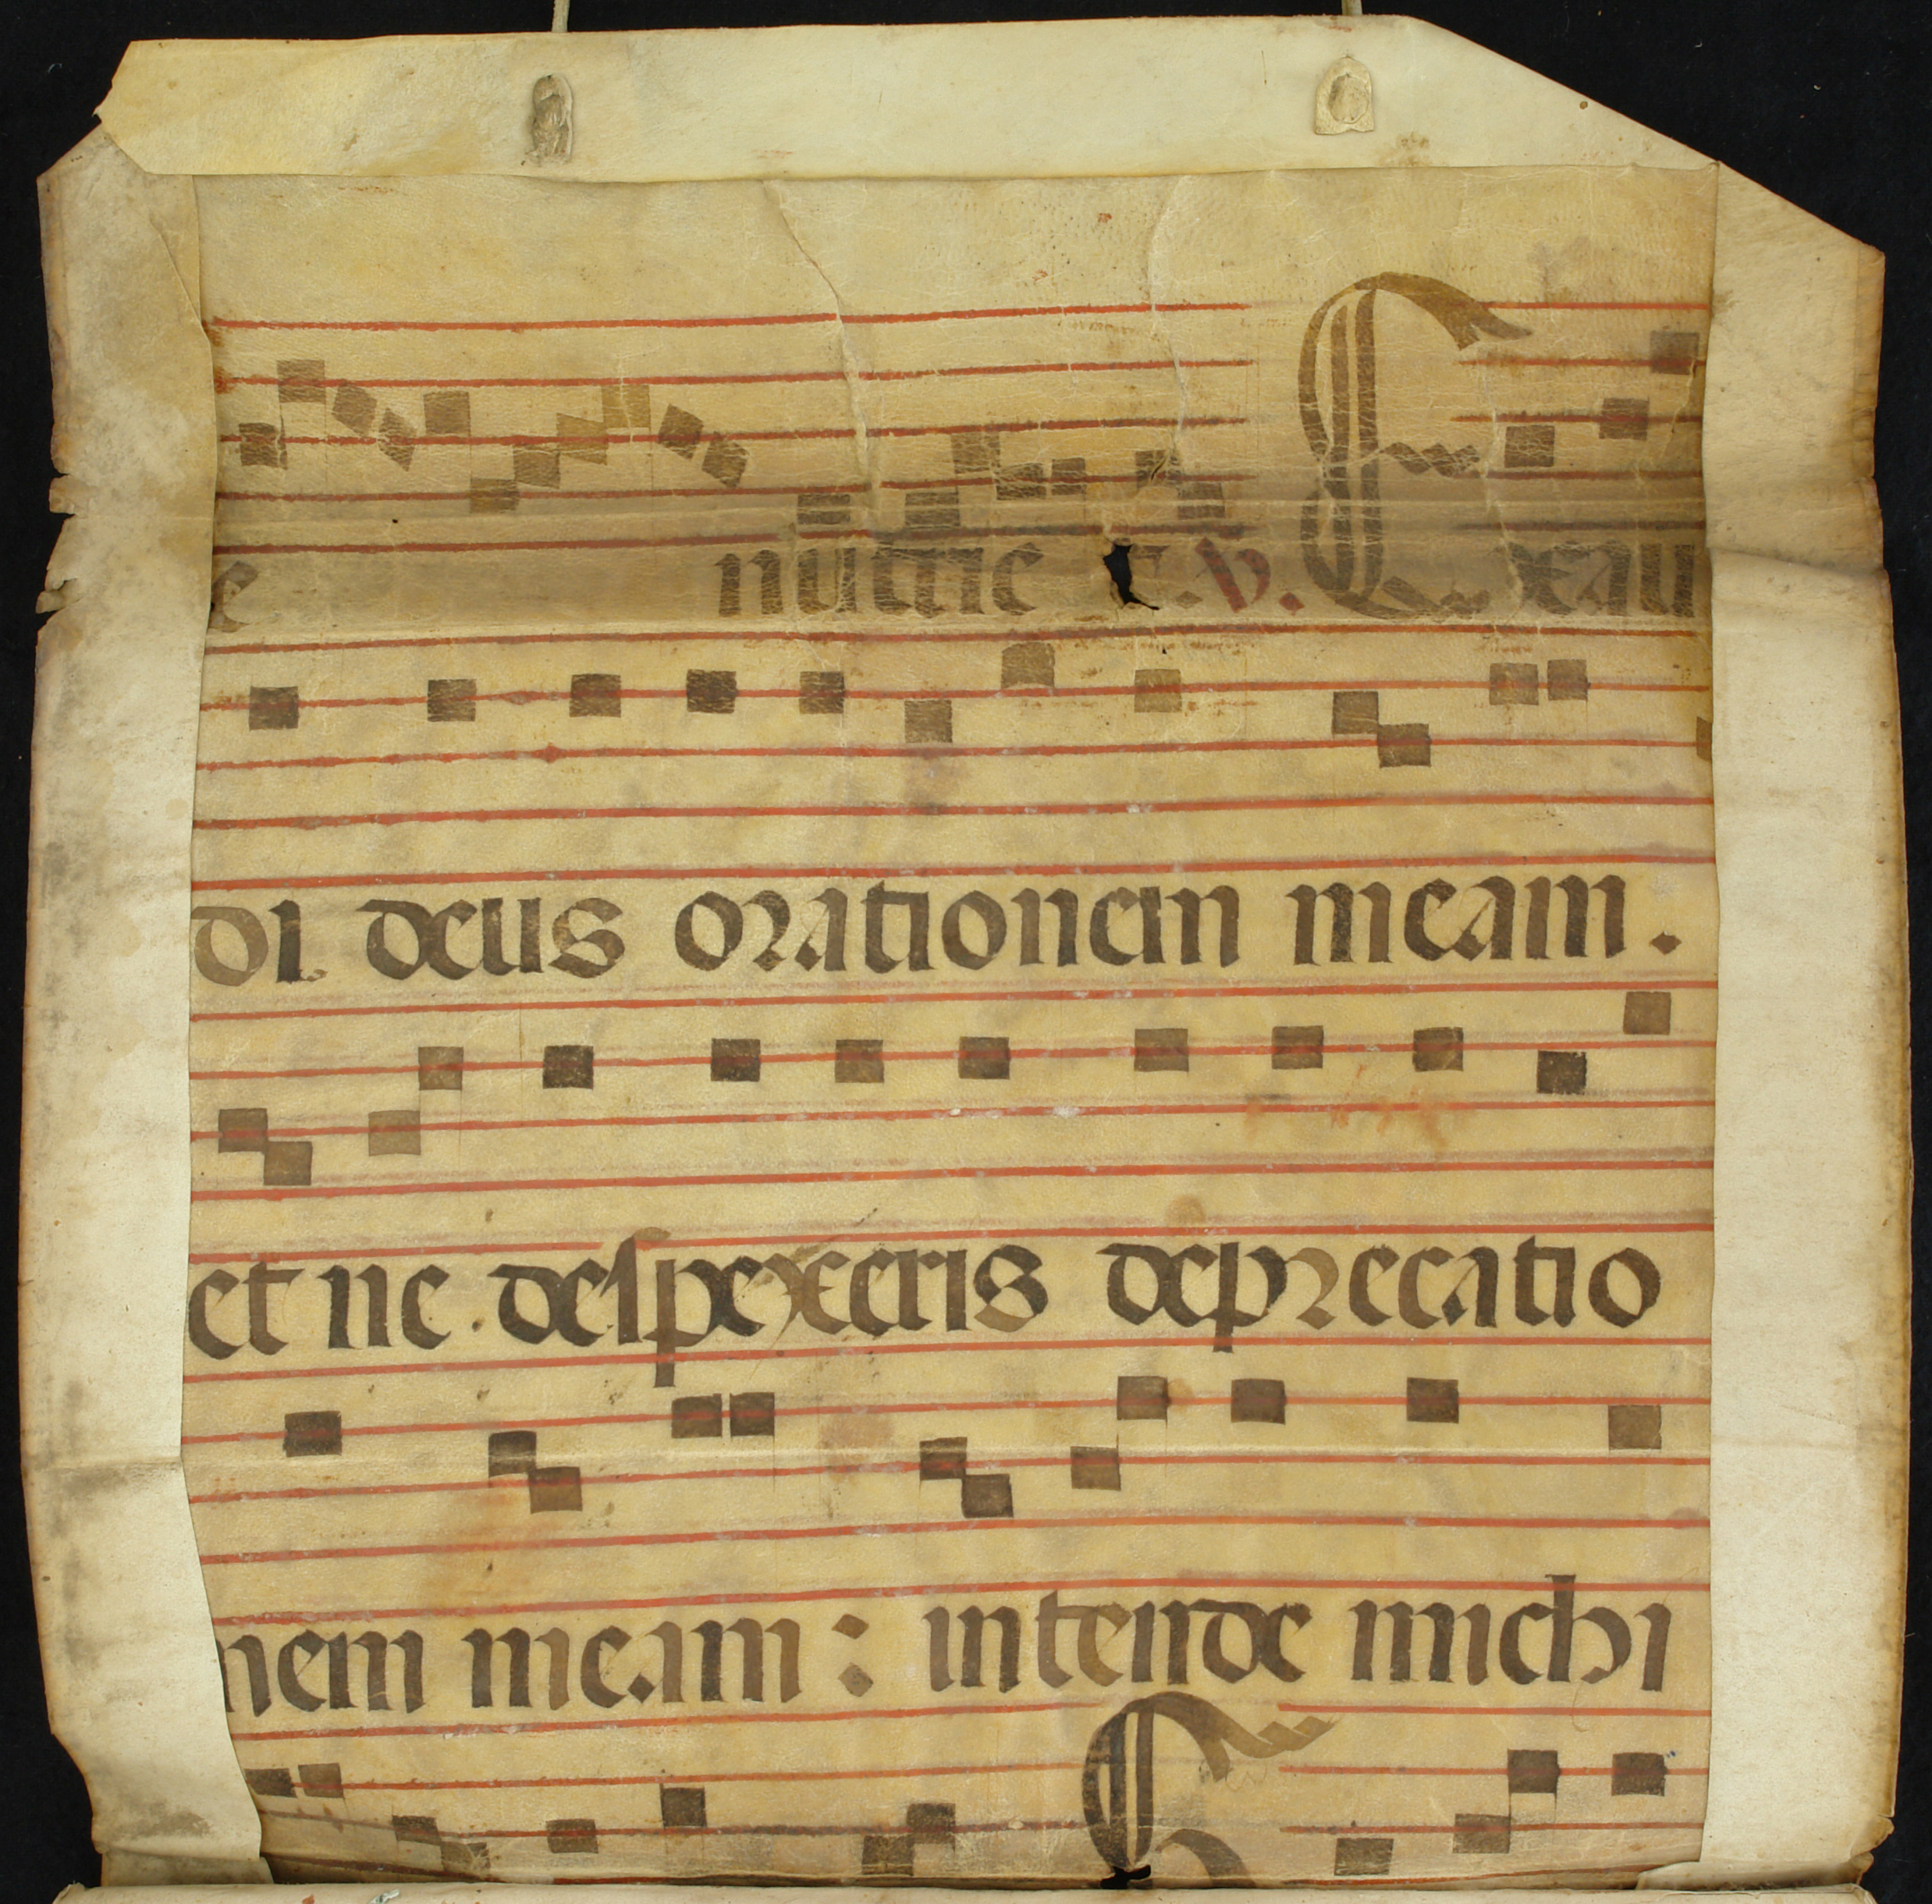 e nuttie t. V. Exau
di deus orationem meam.
et ne despexeris deprecatio
nem meam: intende michi